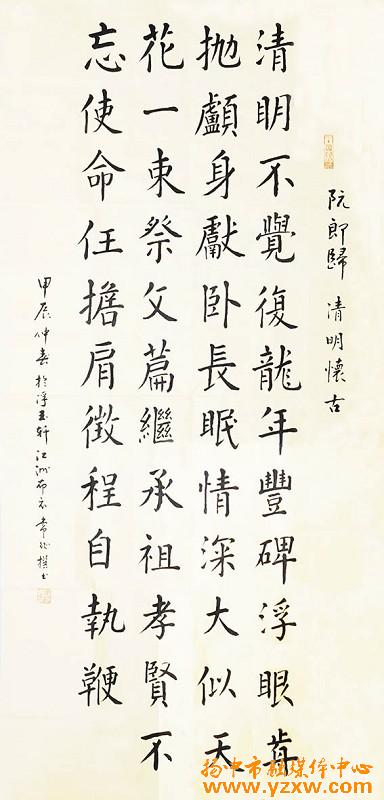 阮郎歸 清明懷古
清眀不覺復龍年豐碑浮眼歬
抛顱身獻卧長眠情深大似天
花一束祭父篇繼承祖孝賢不
忘使命任擔肩徵程自執鞭
甲辰仲春於浮玉轩江洲布衣常撰书
扬中市融媒体中心
www.yzxw.com